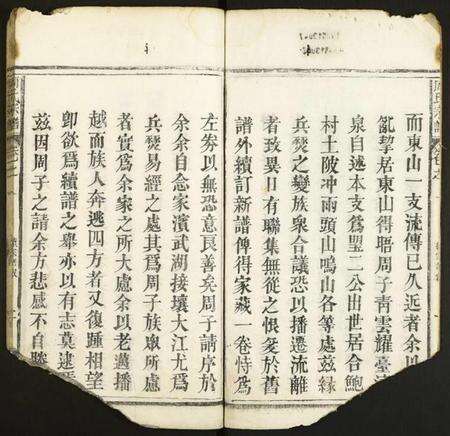 而東山一支流傳已久近者余以
亂挈居東山得晤周子青雲耀臺
泉自述本支爲壐二公出世居合鮑
村土陂冲雨頭山鳴山各等處茲緣
兵燹之變族衆合議恐以播遷流離
者致異日有聯集無從之恨爰於舊
譜外續訂新譜俾得家藏一卷恃爲
左劵以無恐意良善矣周子請序於
余余自念家濱武湖接壤大江尤爲
兵燹易經之處其爲周子族取所慮
者實爲余家之所大慮余以老邁播
越而族人奔逃四方者又復踵相望
卽欲爲續譜之舉亦以有志莫逮
茲因周子之請余方悲感不自勝